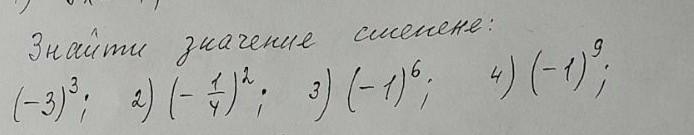 Знайти значение степене:
(-3)³; 2) (-1/4)²; 3) (-1)⁶; 4) (-1)⁹;